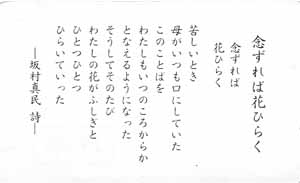 念ずれば花ひらく
念ずれば
花ひらく
苦しいとき
母がいつも口にしていた
このことばを
わたしもいつのころからか
となえるようになった
そうしてそのたび
わたしの花がふしぎと
ひとつひとつ
ひらいていった
―坂村真民 詩―